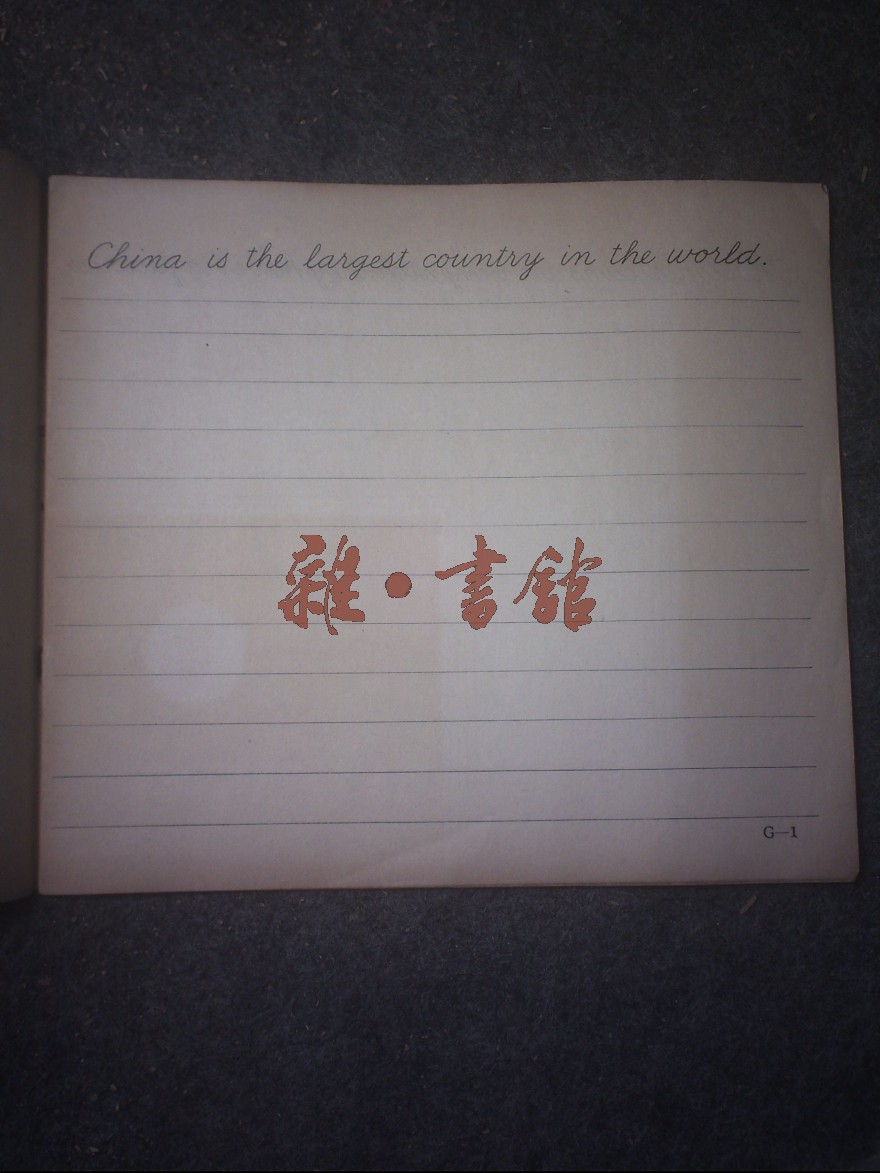 China is the largest country in the world.
雜·書館
G—1